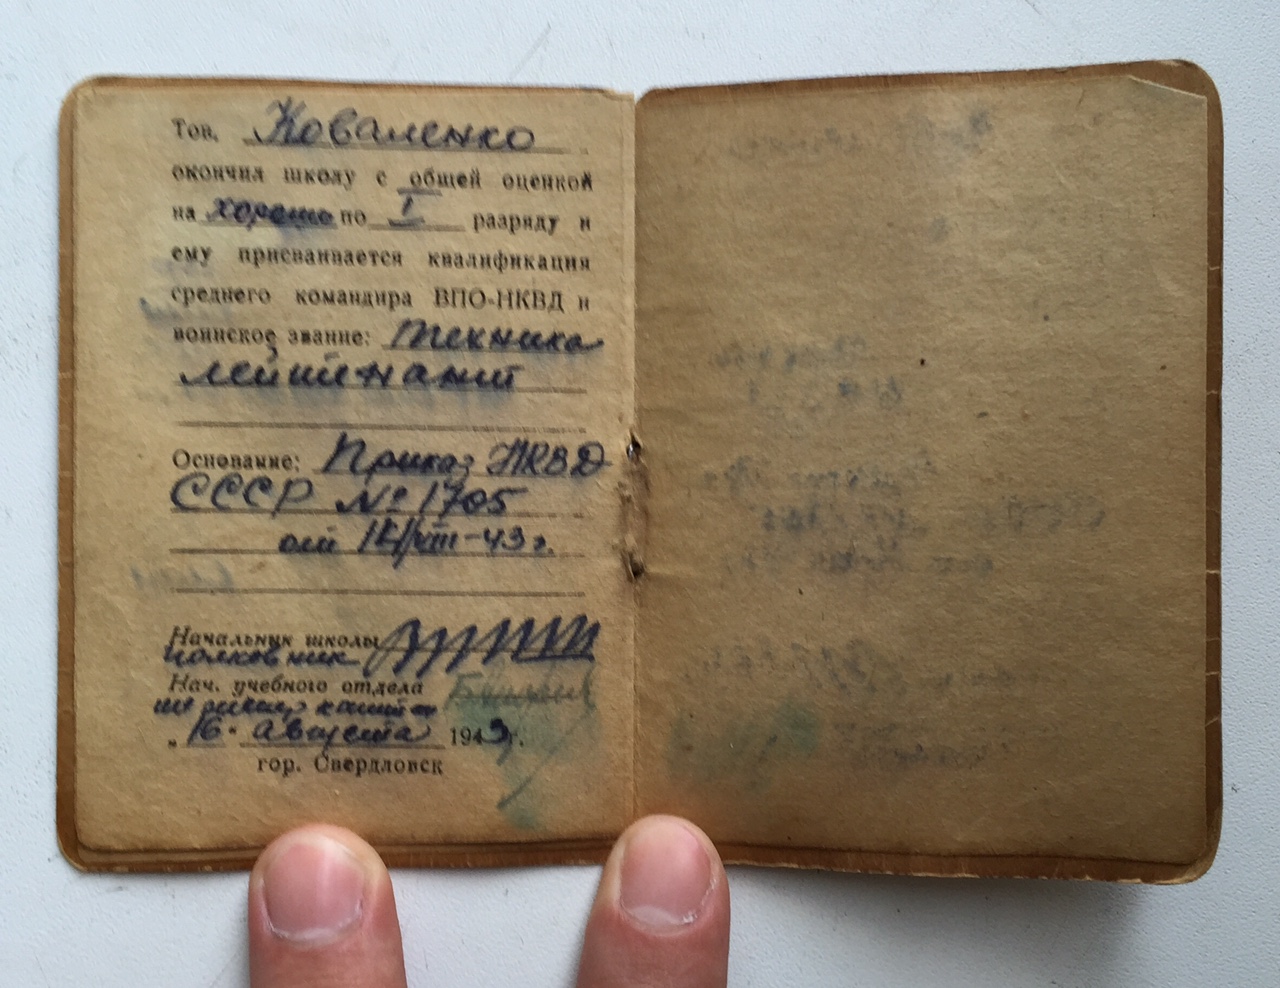 Тов. Коваленко
окончил школу с общей оценкой
на хорошо по I разряду и
ему присваивается квалификация
среднего командира ВПО-НКВД и
воинское звание: техника
лейтенант
Основание: Приказ НКВД
СССР № 1705
от /VIII-43 г.
Начальник школы
полковник
Нач. учебного отдела
„16" августа 1943 г.
гор. Свердловск